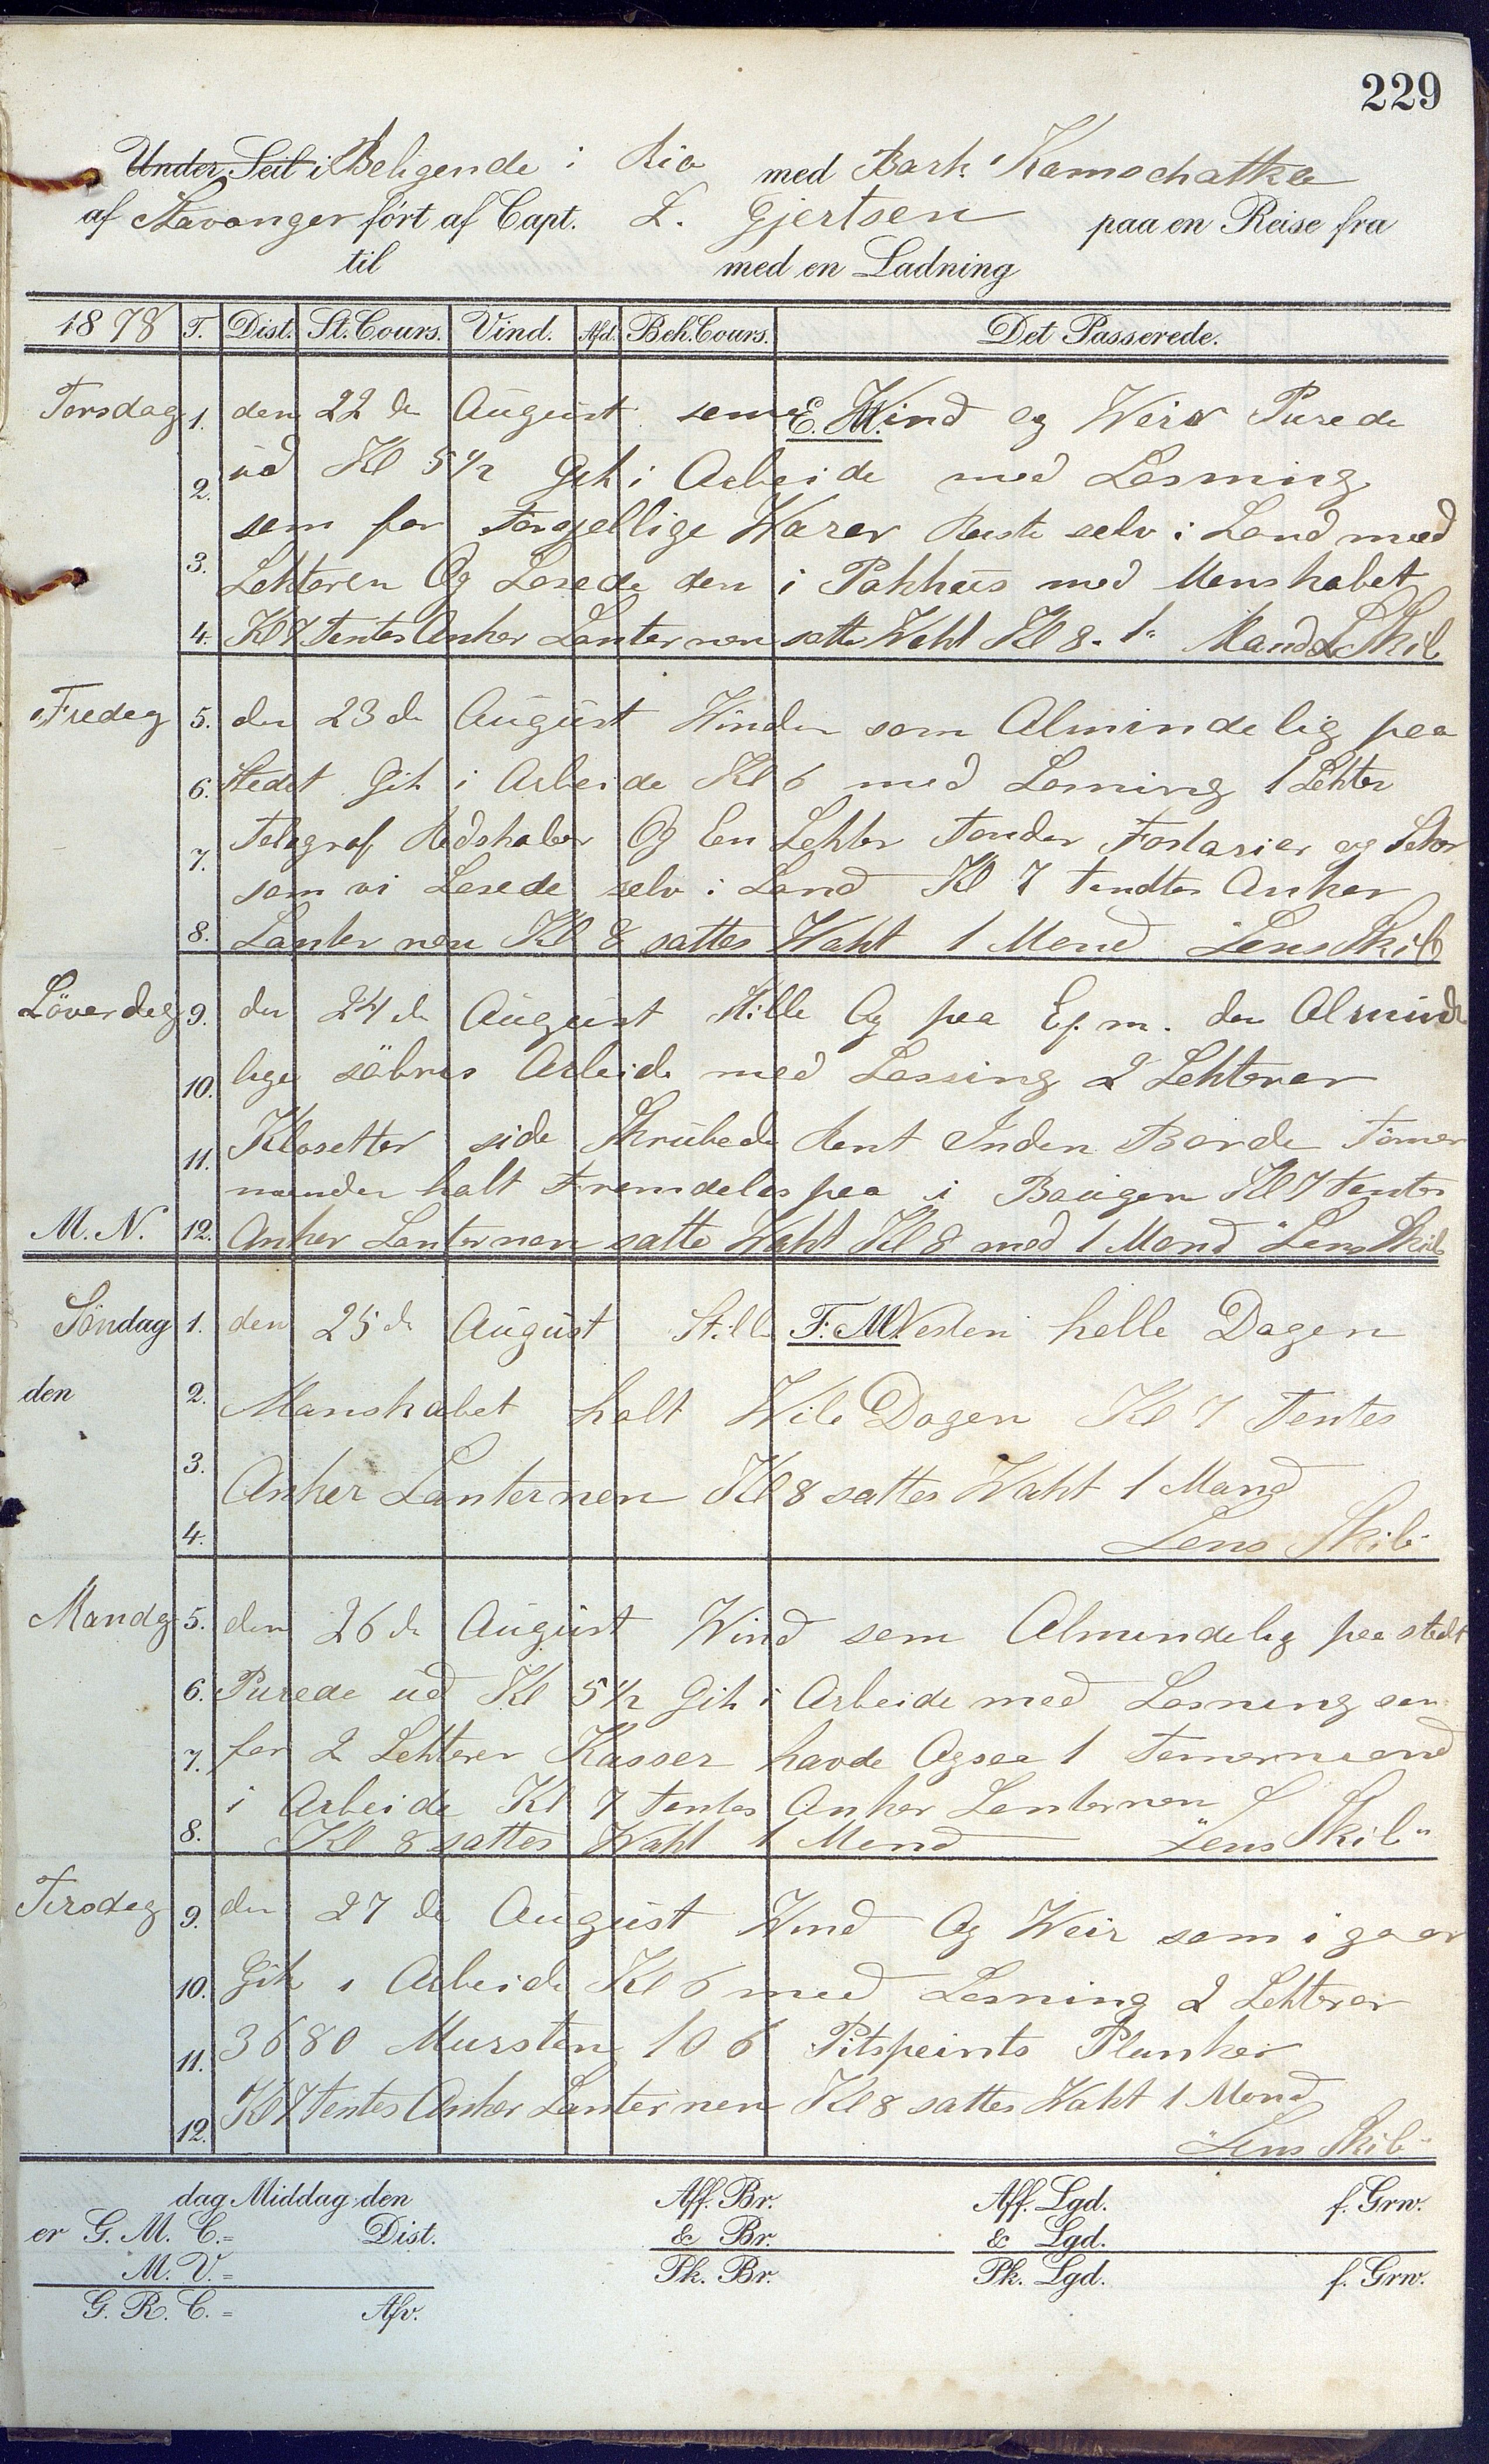 229
Under Seil i Beligende i Rio med Bark Kamschatka
af Stavanger fört af Capt. L. Gjertsen paa en Reise fra
til med en Ladning
1878 T. Dist. St. Cours. Vind. Afd. Beh. Cours. Det Passerede.
Torsdag 1. den 22 de August som E. M. Wind og Weir Purede
2. ud Kl 5 1/2 Gik i Arbeide med Losning
som for Forsjellige Warer selv i Land med
3. Lekteren Og Losede den i Pakhus med Manskabet
4. Kl 7 tentes Anker Lanternen satte Wakt Kl 8 - 1 Mand L Skib
Fredag 5. den 23 de August Winden som Almindelig paa
6. Stedet Gik i Arbeide Kl 6 med Losning 1 Lekter
7. Telegraf Redskaber Og En Lekter Tonder og
som vi Losede selv i Land Kl 7 tendtes Anker
8. Lanternen Kl 8 sattes Wakt 1 Mand Lens Skib
Löverdag 9. den 24 de August Stille Og paa Ef. m. den Alminde
10. lige söbris Arbeide med Lossing 2 Lekterer
11. Klosetter side Skrubede Rent Inden Borde Tömer
mænden halt Fremdeles paa i Baugen Kl 7 tentes
M. N. 12. Anker Lanternen satte Wakt Kl 8 med 1 Mand Lens Skib
Söndag 1. den 25 de August Stille F. M. Nesten helle Dagen
den 2. Manskabet halt Wile Dagen Kl 7 Tentes
3. Anker Lanternen Kl 8 sattes Wakt 1 Mand
4. Lens Skib
Mandg 5. den 26 de August Wind som Almindelig paa stedt
6. Purede ud Kl 5 1/2 Gik i Arbeide med Losning som
7. for 2 Lekterer Kasser havde Ogsaa 1 Tomermand
i Arbeide Kl 7 tentes Anker Lanternen
8. Kl 8 sattes Wakt 1 Mand "Lens Skib"
Tirsdag 9. den 27 de August Wind Og Weir som i gaar
10. Gik i Arbeide Kl 6 med Losning 2 Lekterer
11. 3680 Mursten 106 Pitspeints Planker
Kl 7 tentes Anker Lanternen Kl 8 sattes Wakt 1 Mand
12. "Lens Skib"
dag Middag den Aff. Br. Aff. Lgd. f. Grw.
er G. M. C. = Dist. & Br. & Lgd.
M. V. = Pk. Br. Pk. Lgd. f. Grw.
G. R. C. = Afv.